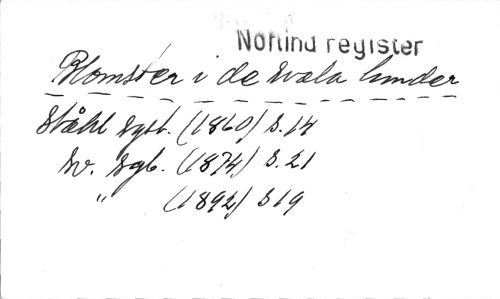 Norlind register
Blomster i de svala lunder
Ståhl sgb. (1860) S. 14
Sv. sgb. (1874) S. 21
" (1892) S 19